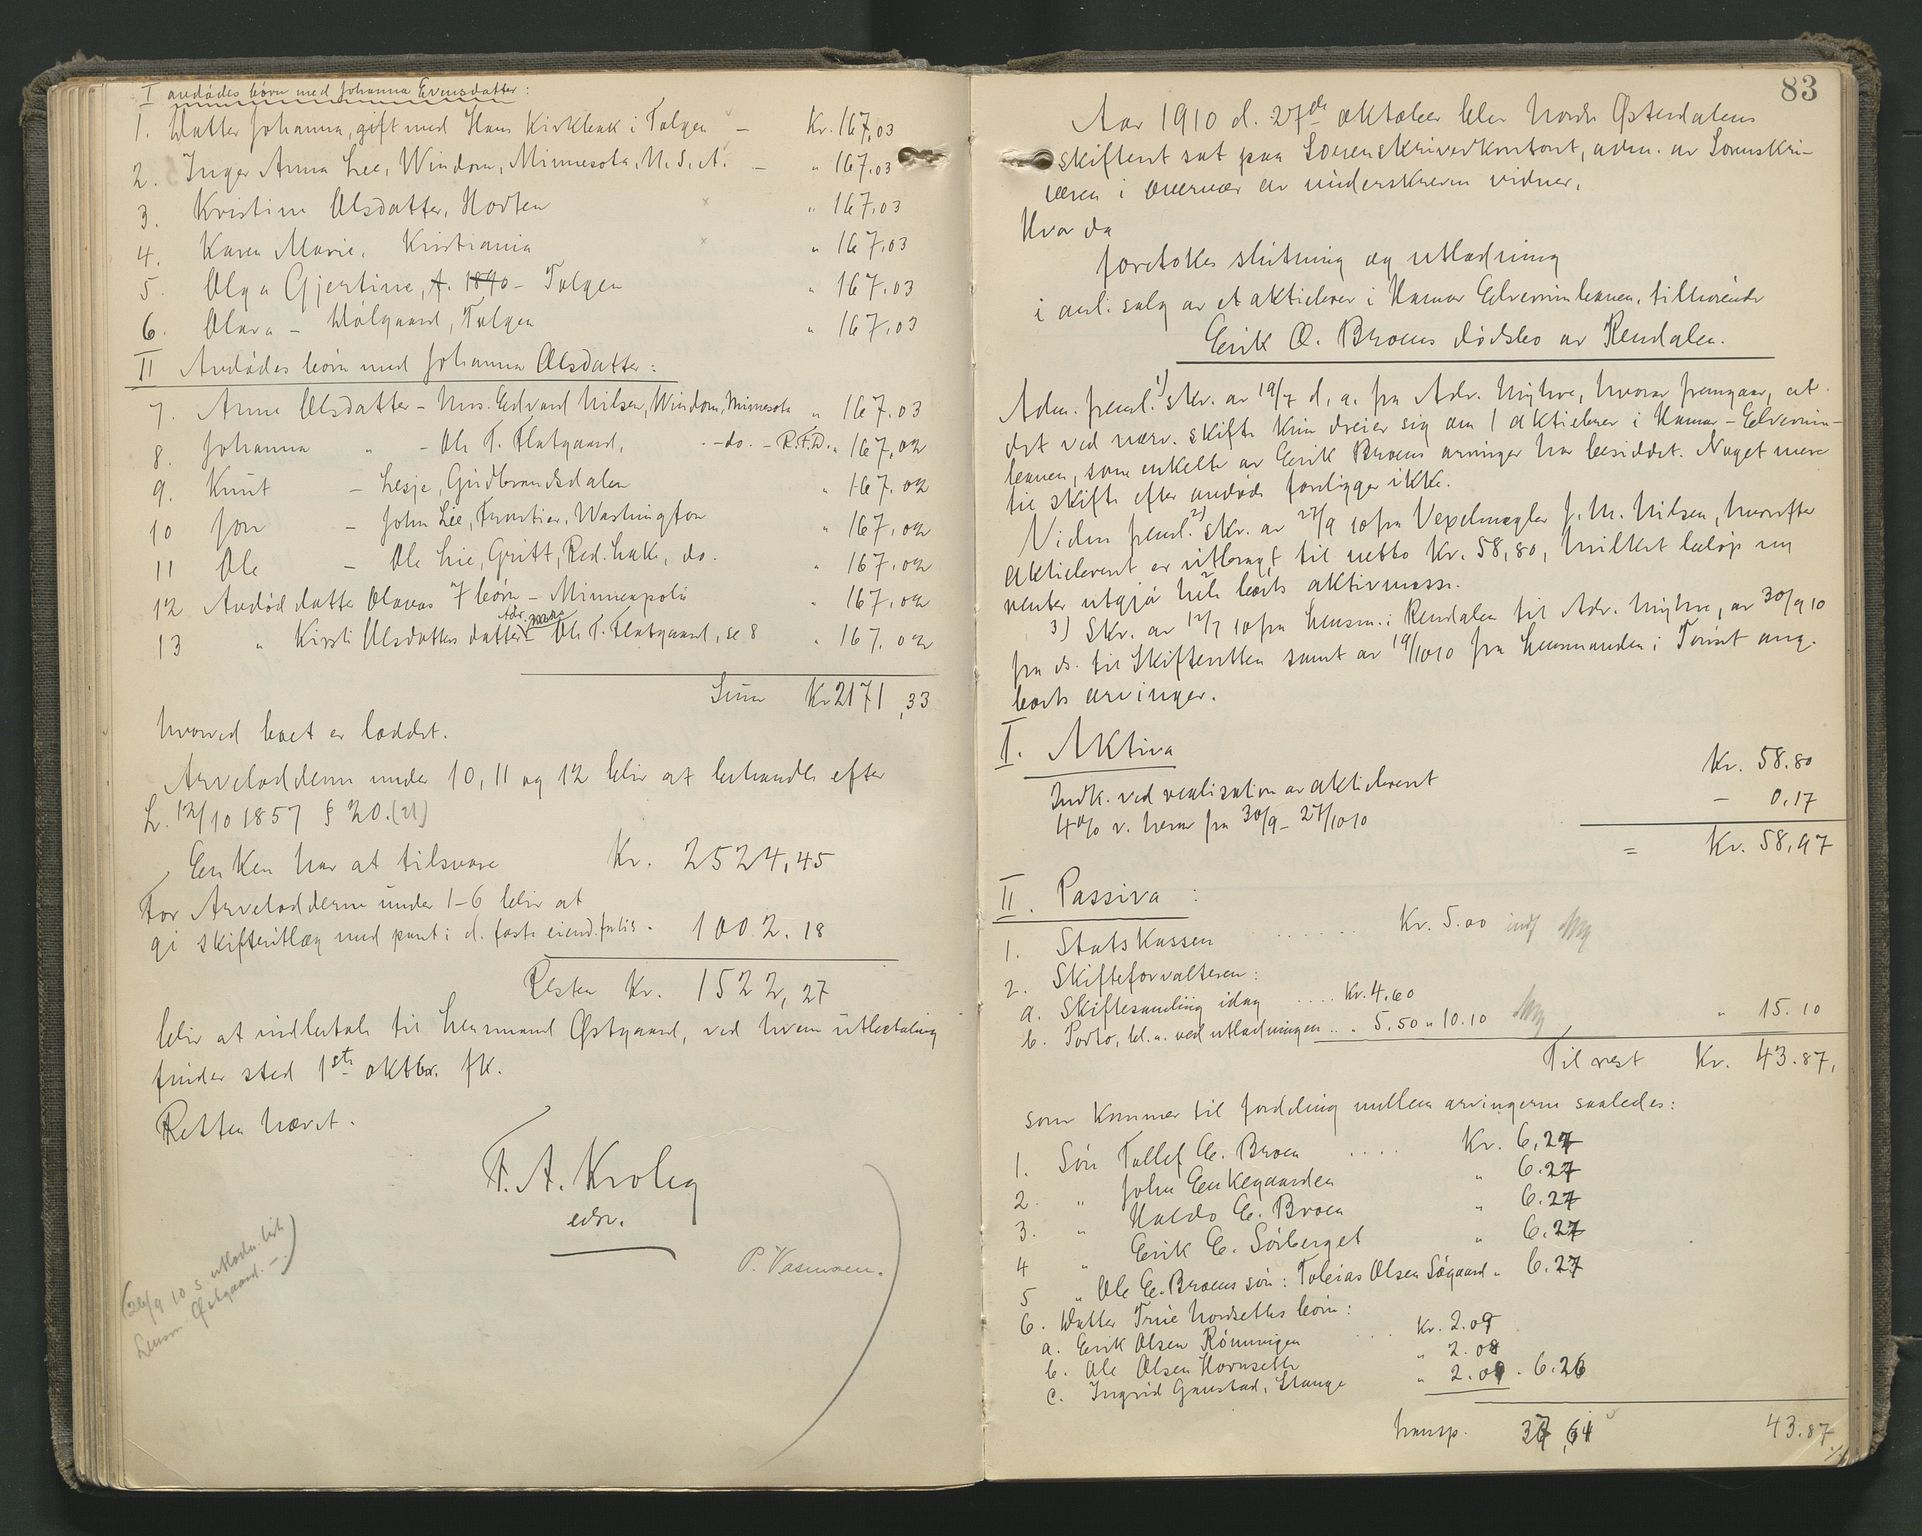 I avdødes børn med Johanna Evensdatter:
1. Datter Johanna, gift med Hans Kirkbak i Tolgen — Kr. 167,03
2. Inger Anna Lie, Windom, Minnesota, U. S. A. — " 167,03
3. Kristine Olsdatter, Horten " 167,03
4. Karen Marie, Kristiania " 167,03
5. Olga Gjertine, f. 1890 – Tolgen " 167,03
6. Olava – Dølgaard, Tolgen " 167,03
II Avdødes børn med Johanna Olsdatter:
7. Anne Olsdatter – Mrs. Edvard Nilsen, Windom, Minnesota " 167,03
8. Johanna " – Ole T. Flatgaard, – do. – R.F.D. " 167,02
9. Knut – Lesje, Gudbrandsdalen " 167,02
10 Jon – John Lie, Frontier, Washington " 167,02
11 Ole – Ole Lie, Gritt, Red. Lak, do. " 167,02
12 Avdød datter Olavas 7 børn – Minneapolis " 167,02
13 " Kirsti Olsdatters datter – Adr. Ole T. Flatgaard, se 8 " 167,02
Sum Kr 2171,33
hvorved boet er loddet.
Arvelodderne under 10, 11 og 12 blir at behandle efter
L. 12/10 1857 § 20. (21)
Enken har at tilsvare Kr. 2524,45
For Arvelodderne under 1–6 blir at
gi skifteutlæg med pant i d. faste eiend. forlis. 1002.18
Resten Kr. 1522,27
blir at indbetale til Lensmand Østgaard, ved hvem utbetaling
finder sted 1ste oktbr. fk.
Retten hævet.
F. A. Krolig
edsv.
P. Vasmoen.
(26/9 10 s utlodn. list
Lensm. Østgaard. –)
83
Aar 1910 d. 27de oktober blev Nordre Østerdalens
skifteret sat paa Sorenskriverkontoret, adm. av Sorenskri-
veren i overvær av underskrevne vidner.
Hvorda
foretokes slutning og utlodning
i anl. salg av et aktiebrev i Hamar Elverumbanen, tilhørende
Erik O. Broens dødsbo av Rendalen.
Adm. freml. 1) skr. av 19/7 d. a. fra Adv. Myhre, hvorav fremgaar, at
det ved nærv. skifte kun dreier sig om 1 aktiebrev i Hamar–Elverum-
banen, som enkelte av Erik Broens arvinger har besiddet. Noget mere
til skifte efter avdøde foreligger ikke.
Viden freml. 2) skr. av 27/9 10 fra Vexelmægler J. M. Nilsen, hvorefter
aktiebrevet er utbragt til netto Kr. 58,80, hvilket beløp m
renter utgjør hele boets aktivmasse.
3) Skr. av 12/7 10 fra Lensm. i Rendalen til Adv. Myhre, av 30/9 10
fra ds. til Skifteretten samt av 19/10 10 fra Lensmanden i Tønset ang.
boets arvinger.
I. Aktiva
Indk. ved realisation av aktiebrevet Kr. 58.80
4% r. herav fra 30/9 – 27/10 10 – 0,17
= Kr. 58,97
II. Passiva:
1. Statskassen ....... Kr. 5.00 indf
2. Skifteforvalteren:
a. Skiftesamling idag .... Kr. 4.60
b. Porto, bl. a. ved utlodningen .. " 5.50 " 10.10 " 15.10
Til rest Kr. 43.87,
som kommer til fordeling mellem arvingerne saaledes:
1. Søn Tollef E. Broen .... Kr. 6.27
2. " John Enkegaarden " 6.27
3. " Haldo E. Broen " 6.27
4 " Erik E. Sørberget " 6.27
5 " Ole E. Broens søn: Tobias Olsen Søgaard " 6.27
6. Datter Trine Nordsettes børn:
a. Erik Olsen Rønningen .... Kr. 2.09
b. Ole Olsen Hornsette " 2.08
c. Ingrid Gaustad, Stange " 2.09 . 6.26
transp. 37,61 43.87